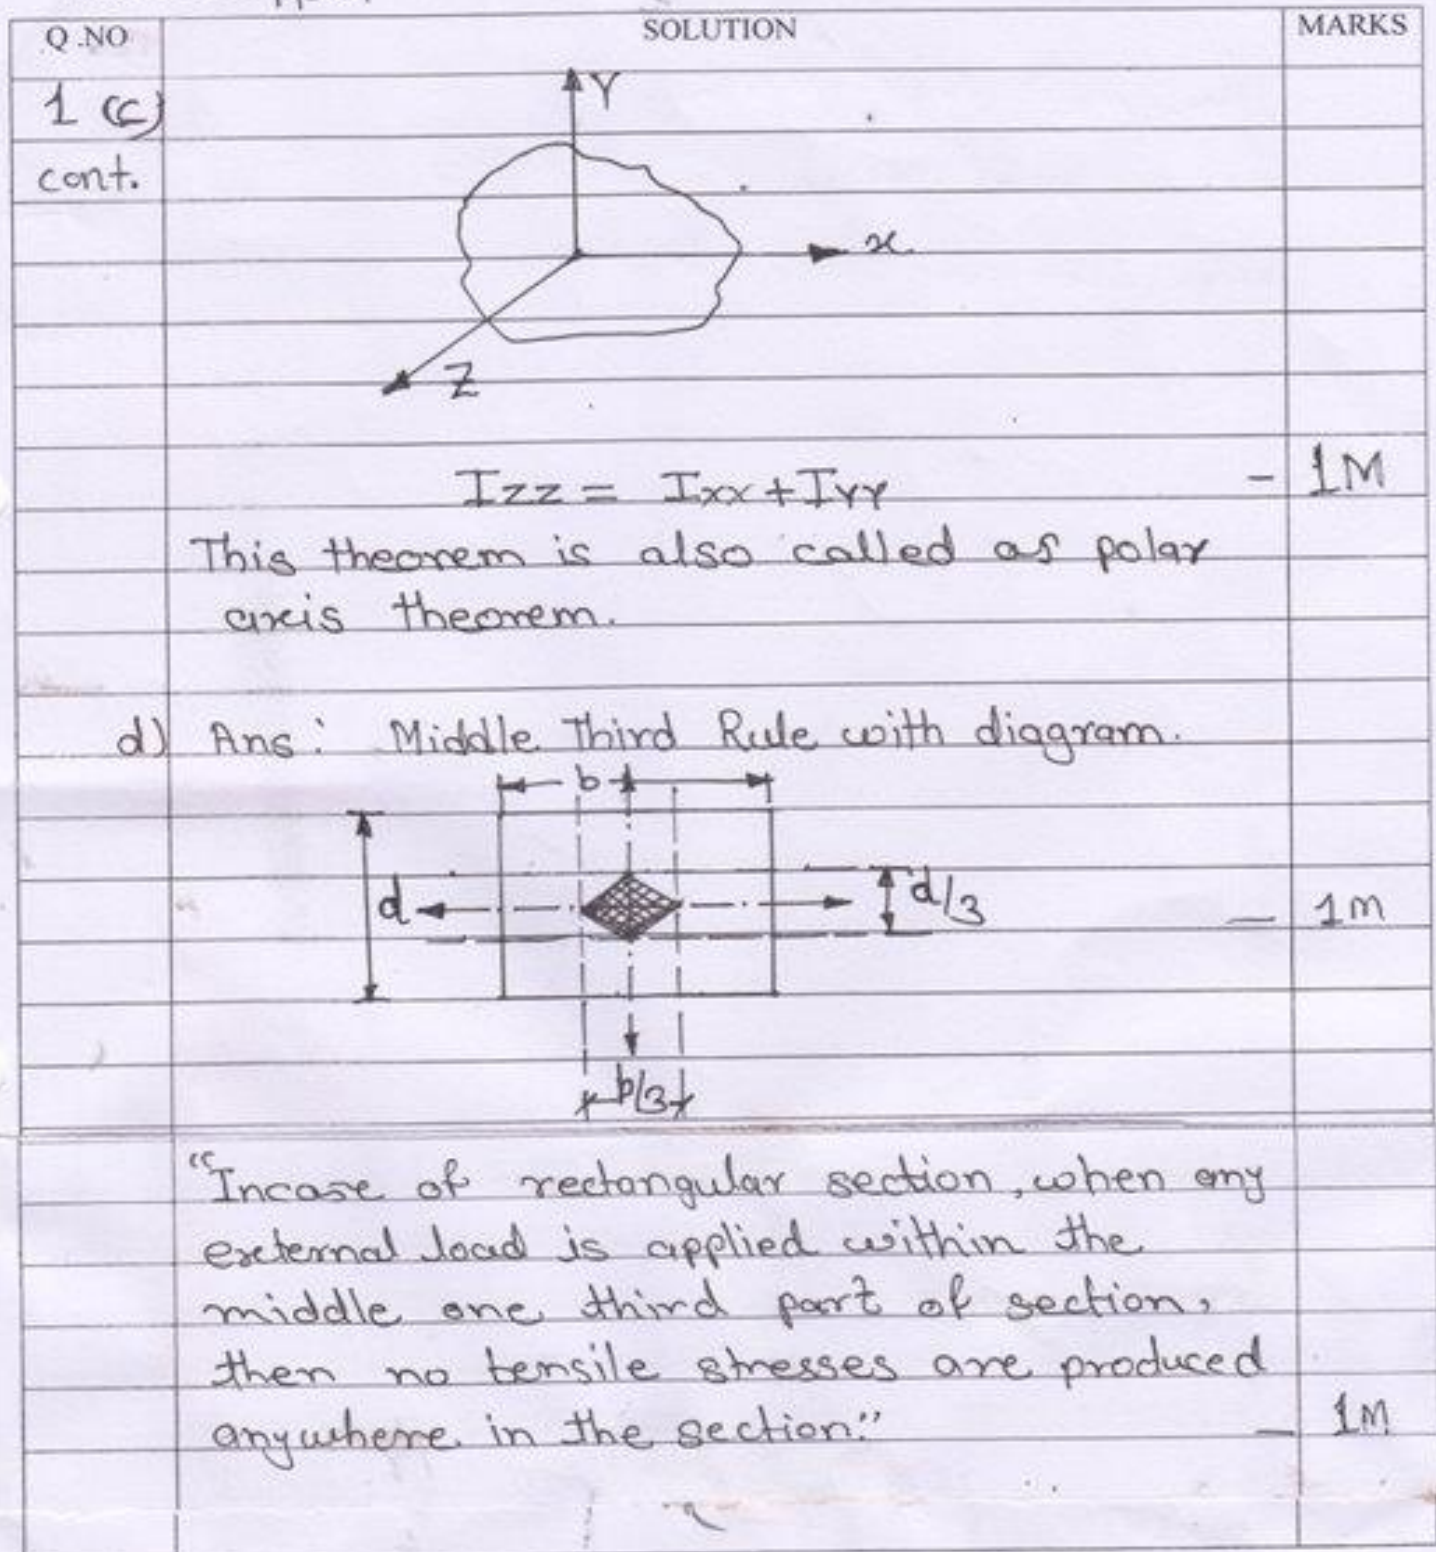 Q.NO SOLUTION MARKS
1 (c)
cont.
Y
x
Z
Izz = Ixx + IYY - 1M
This theorem is also called as polar
axis theorem.
d) Ans: Middle Third Rule with diagram.
b
d
d/3 — 1M
b/3
"Incase of rectangular section, when any
external load is applied within the
middle one third part of section,
then no tensile stresses are produced
anywhere in the section." — 1M